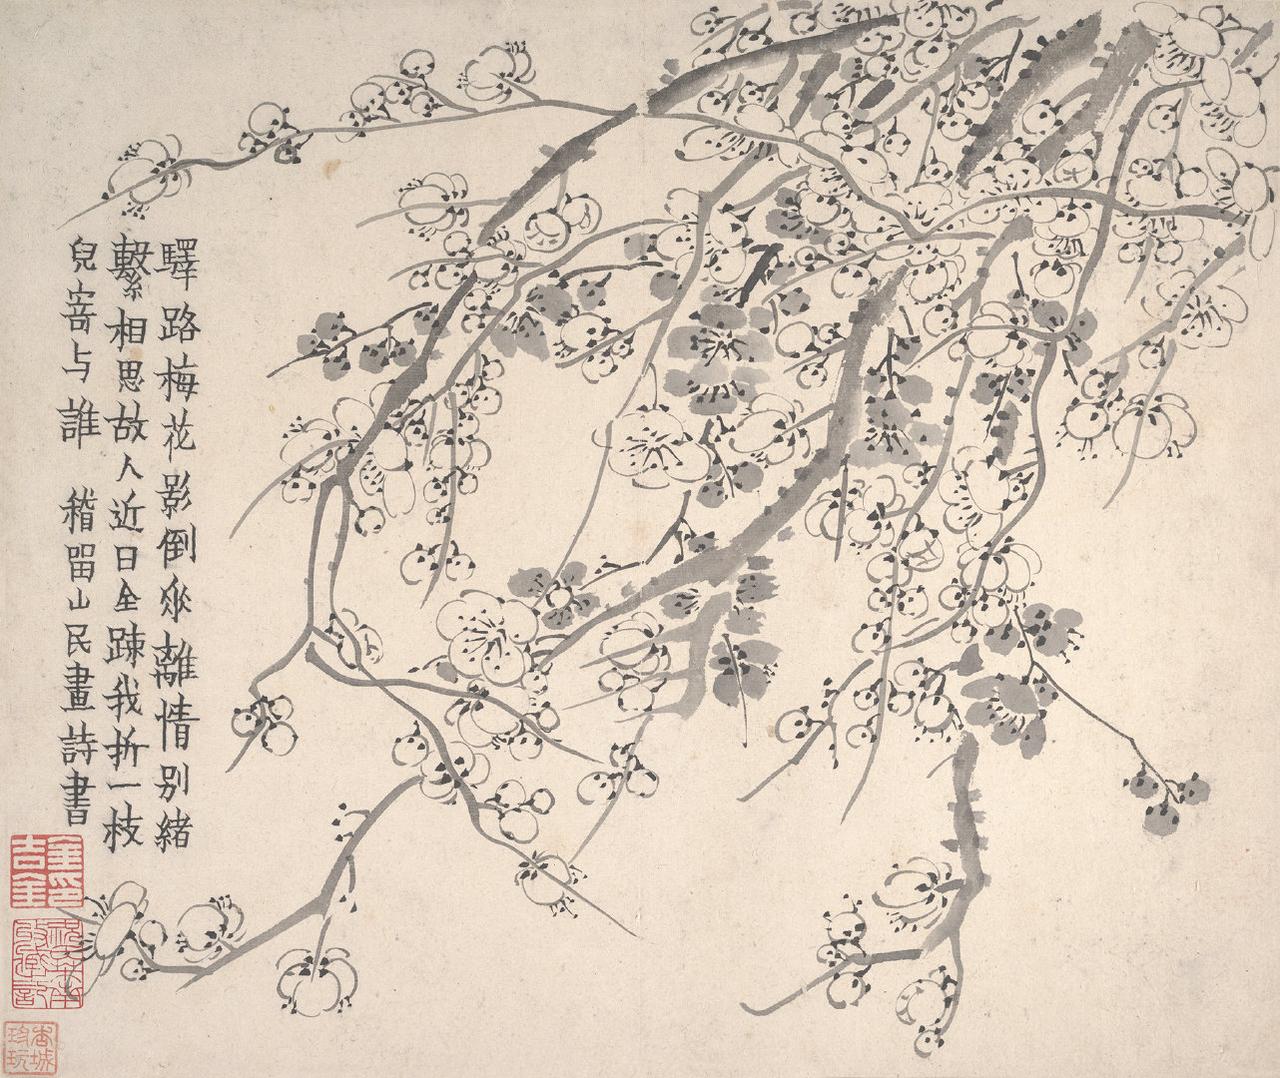 驛路梅花影倒垂離情別緒
繫相思故人近日全疎我折一枝
兒寄与誰 稽留山民畫詩書
金吉金印
香城珍玩